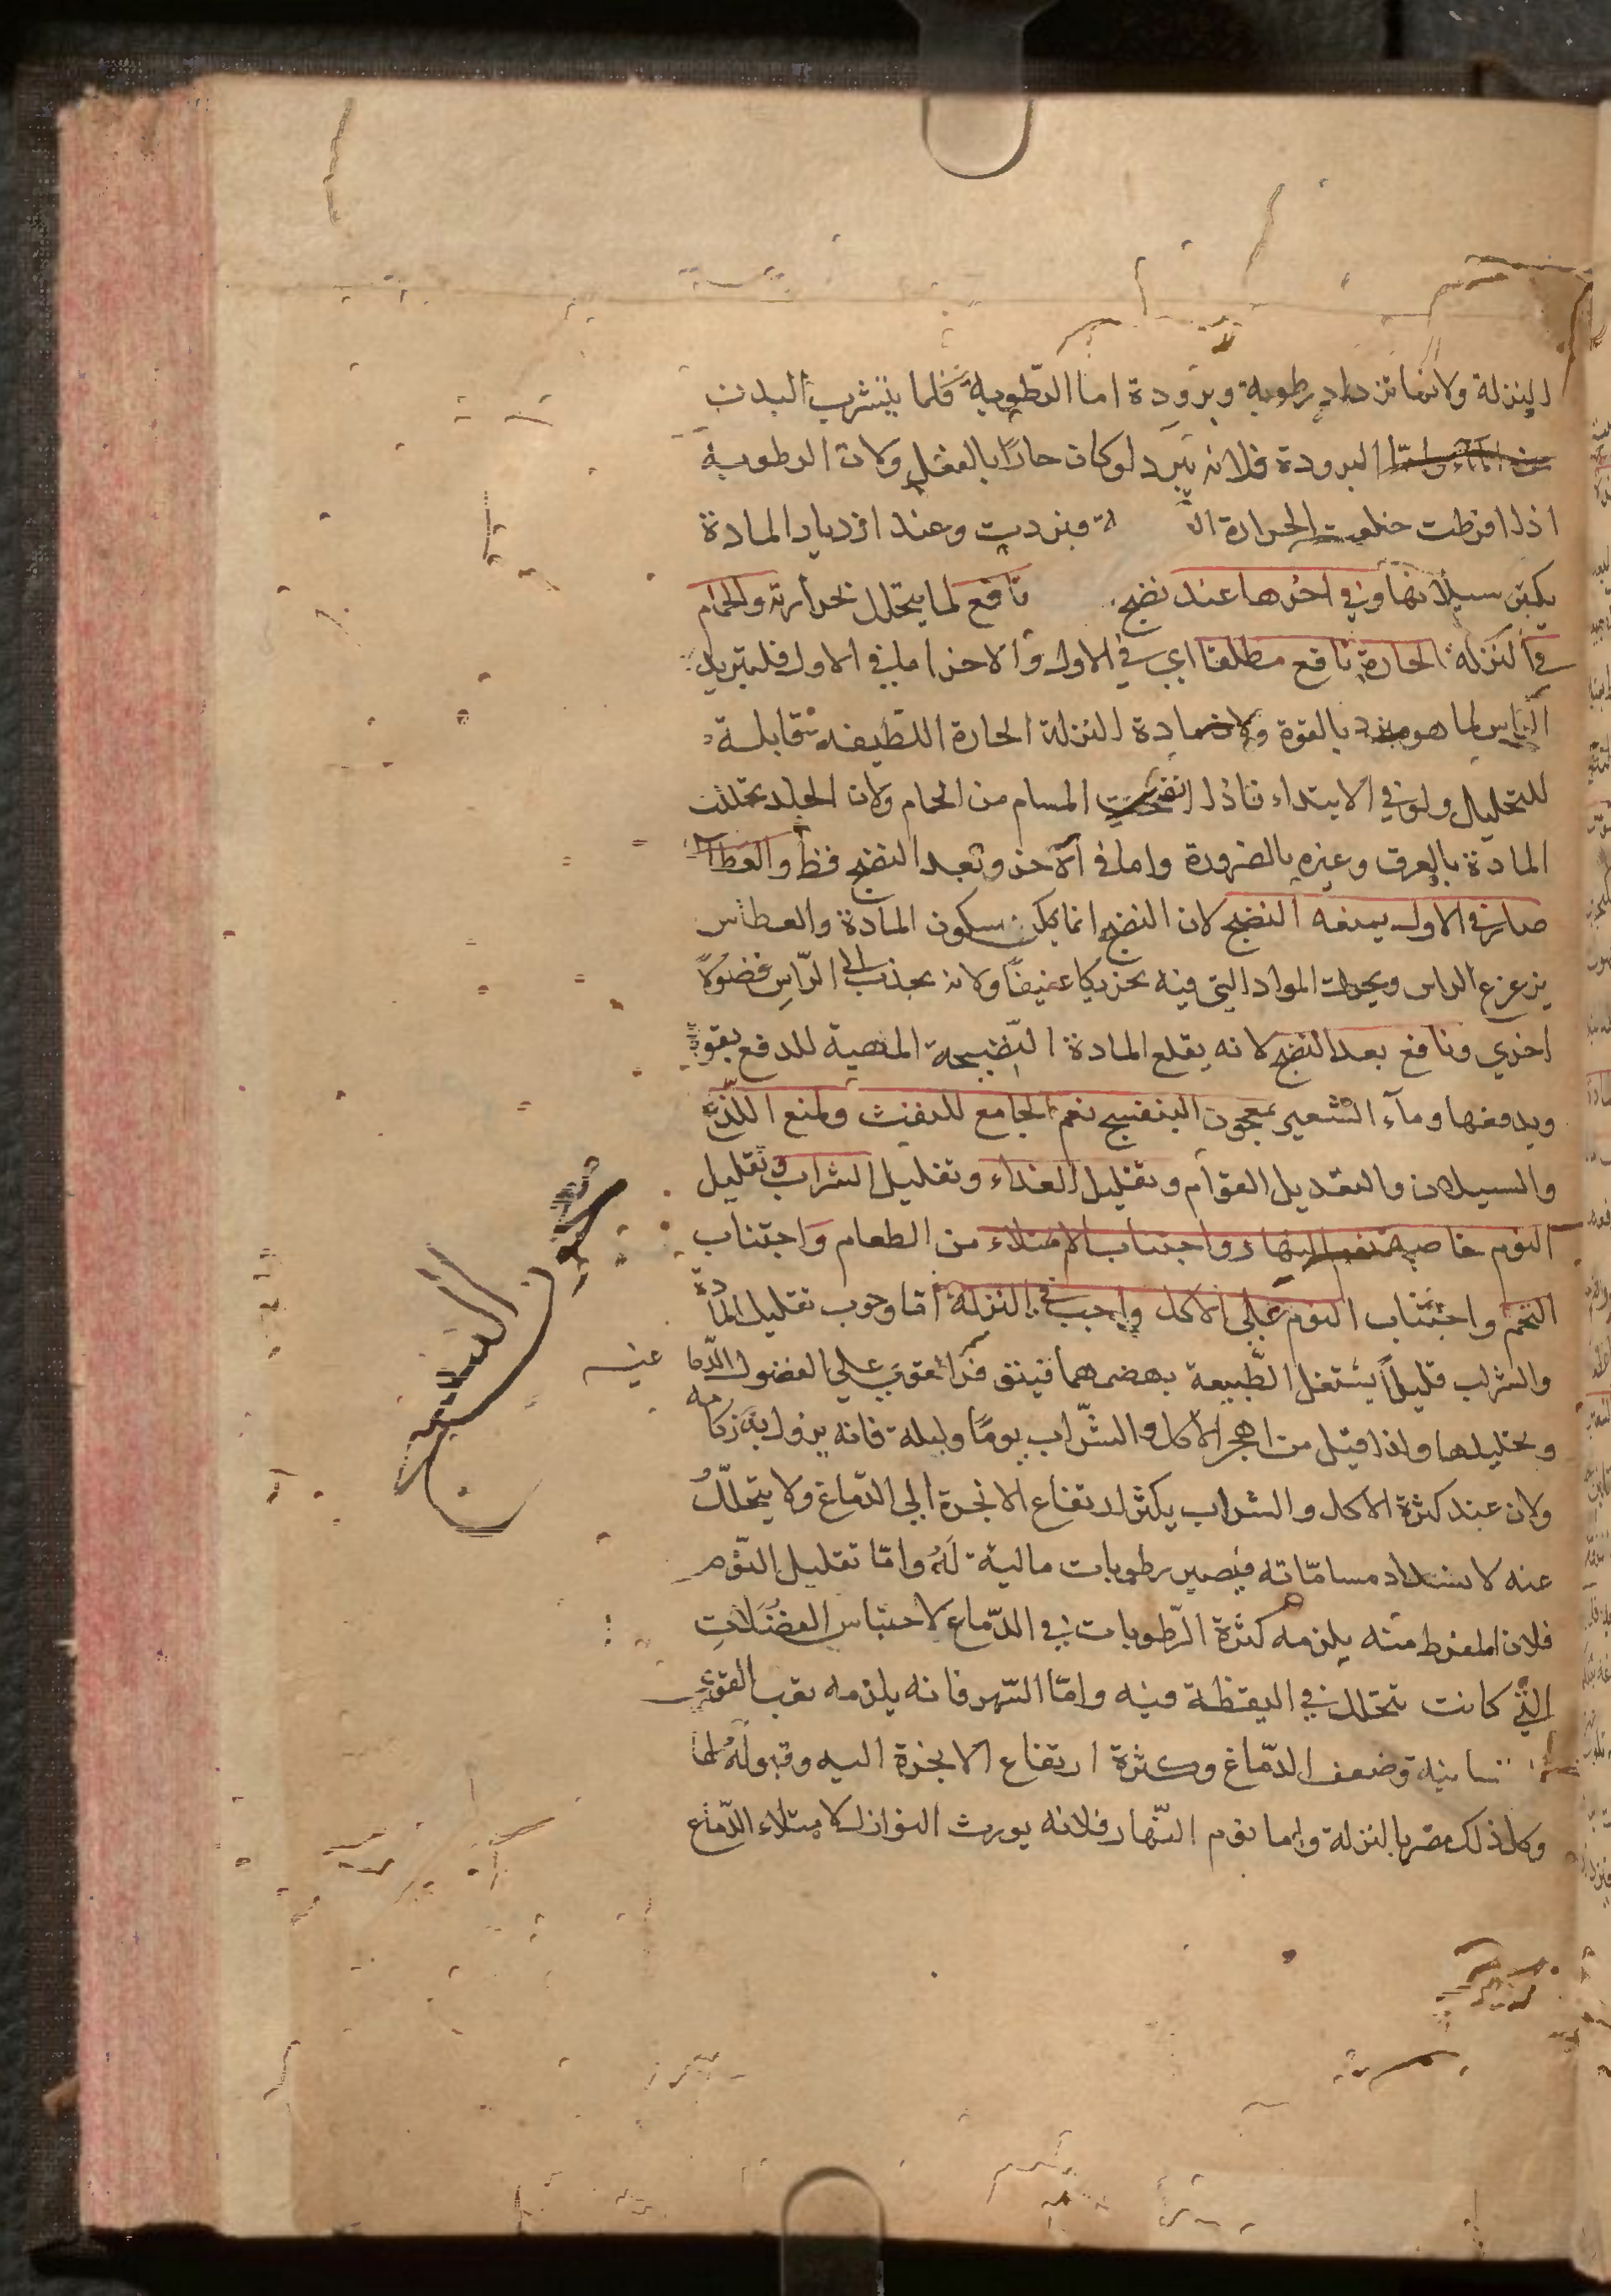 النزلة ولانها تزداد رطوبة وبرودة اما الرطوبة فلما يتشرب البدن
من الماء واما البرودة فلانه يبرد لو كان حارا بالفعل ولان الرطوبة
اذا افرطت الحرارة فبردت وعند ازدياد المادة
يكثر سيلانها وفي اخرها عند نضج نافع لما يتحلل بحرارته والحمام
في النزلة الحارة نافع مطلقا اي في الاول والاخر اما في الاول فلتبريد
الراس لما هو مبرد بالقوة ولان مادة النزلة الحارة اللطيفة قابلة
للتحليل ولو في الابتداء فاذا انفتحت المسام من الحمام ولان الجلد تحللت
المادة بالعرق وغيره بالضرورة واما في الآخر وبعد النضج فظ والعطاس
ضار في الاول يمنعه النضج لان النضج انما يكون بسكون المادة والعطاس
يزعزع الراس ويحرك المواد التي فيه تحريكا عنيفا ولانه يجذب الى الراس فضولا
اخرى ونافع بعد النضج لانه يقلع المادة النضيجة المتهيئة للدفع بقوة
ويدفعها وماء الشعير بمعجون البنفسج نعم الجامع للنفث ولمنع اللذع
والسيلان والتعديل القوام وتقليل الغذاء وتقليل الشراب وتقليل
النوم خاصة نوم النهار واجتناب الامتلاء من الطعام واجتناب
التخم واجتناب النوم على الاكل واجب في النزلة اما وجوب تقليل المادة
والشراب قليلا يشتغل الطبيعة بهضمهما على الفضول الدما غيه
وتحليلها واذا قيل من اهجر الاكل والشراب يوما وليلة فانه يزول به زكامه
ولان عند كثرة الاكل والشراب يكثر ارتفاع الابخرة الى الدماغ ولا يتحلل
عنه لانسداد مساماته فيصير رطوبات مالية له واما تقليل النوم
فلان المفرط منه يلزمه كثرة الرطوبات في الدماغ لاحتباس الفضلات
التي كانت تتحلل في اليقظة فيه واما السهر فانه يلزمه تعب القوى
النفسانية وضعف الدماغ وكثرة ارتفاع الابخرة اليه وقبوله لها
وكل ذلك مضر بالنزلة واما نوم النهار فلانه يورث النوازل لامتلاء الدماغ